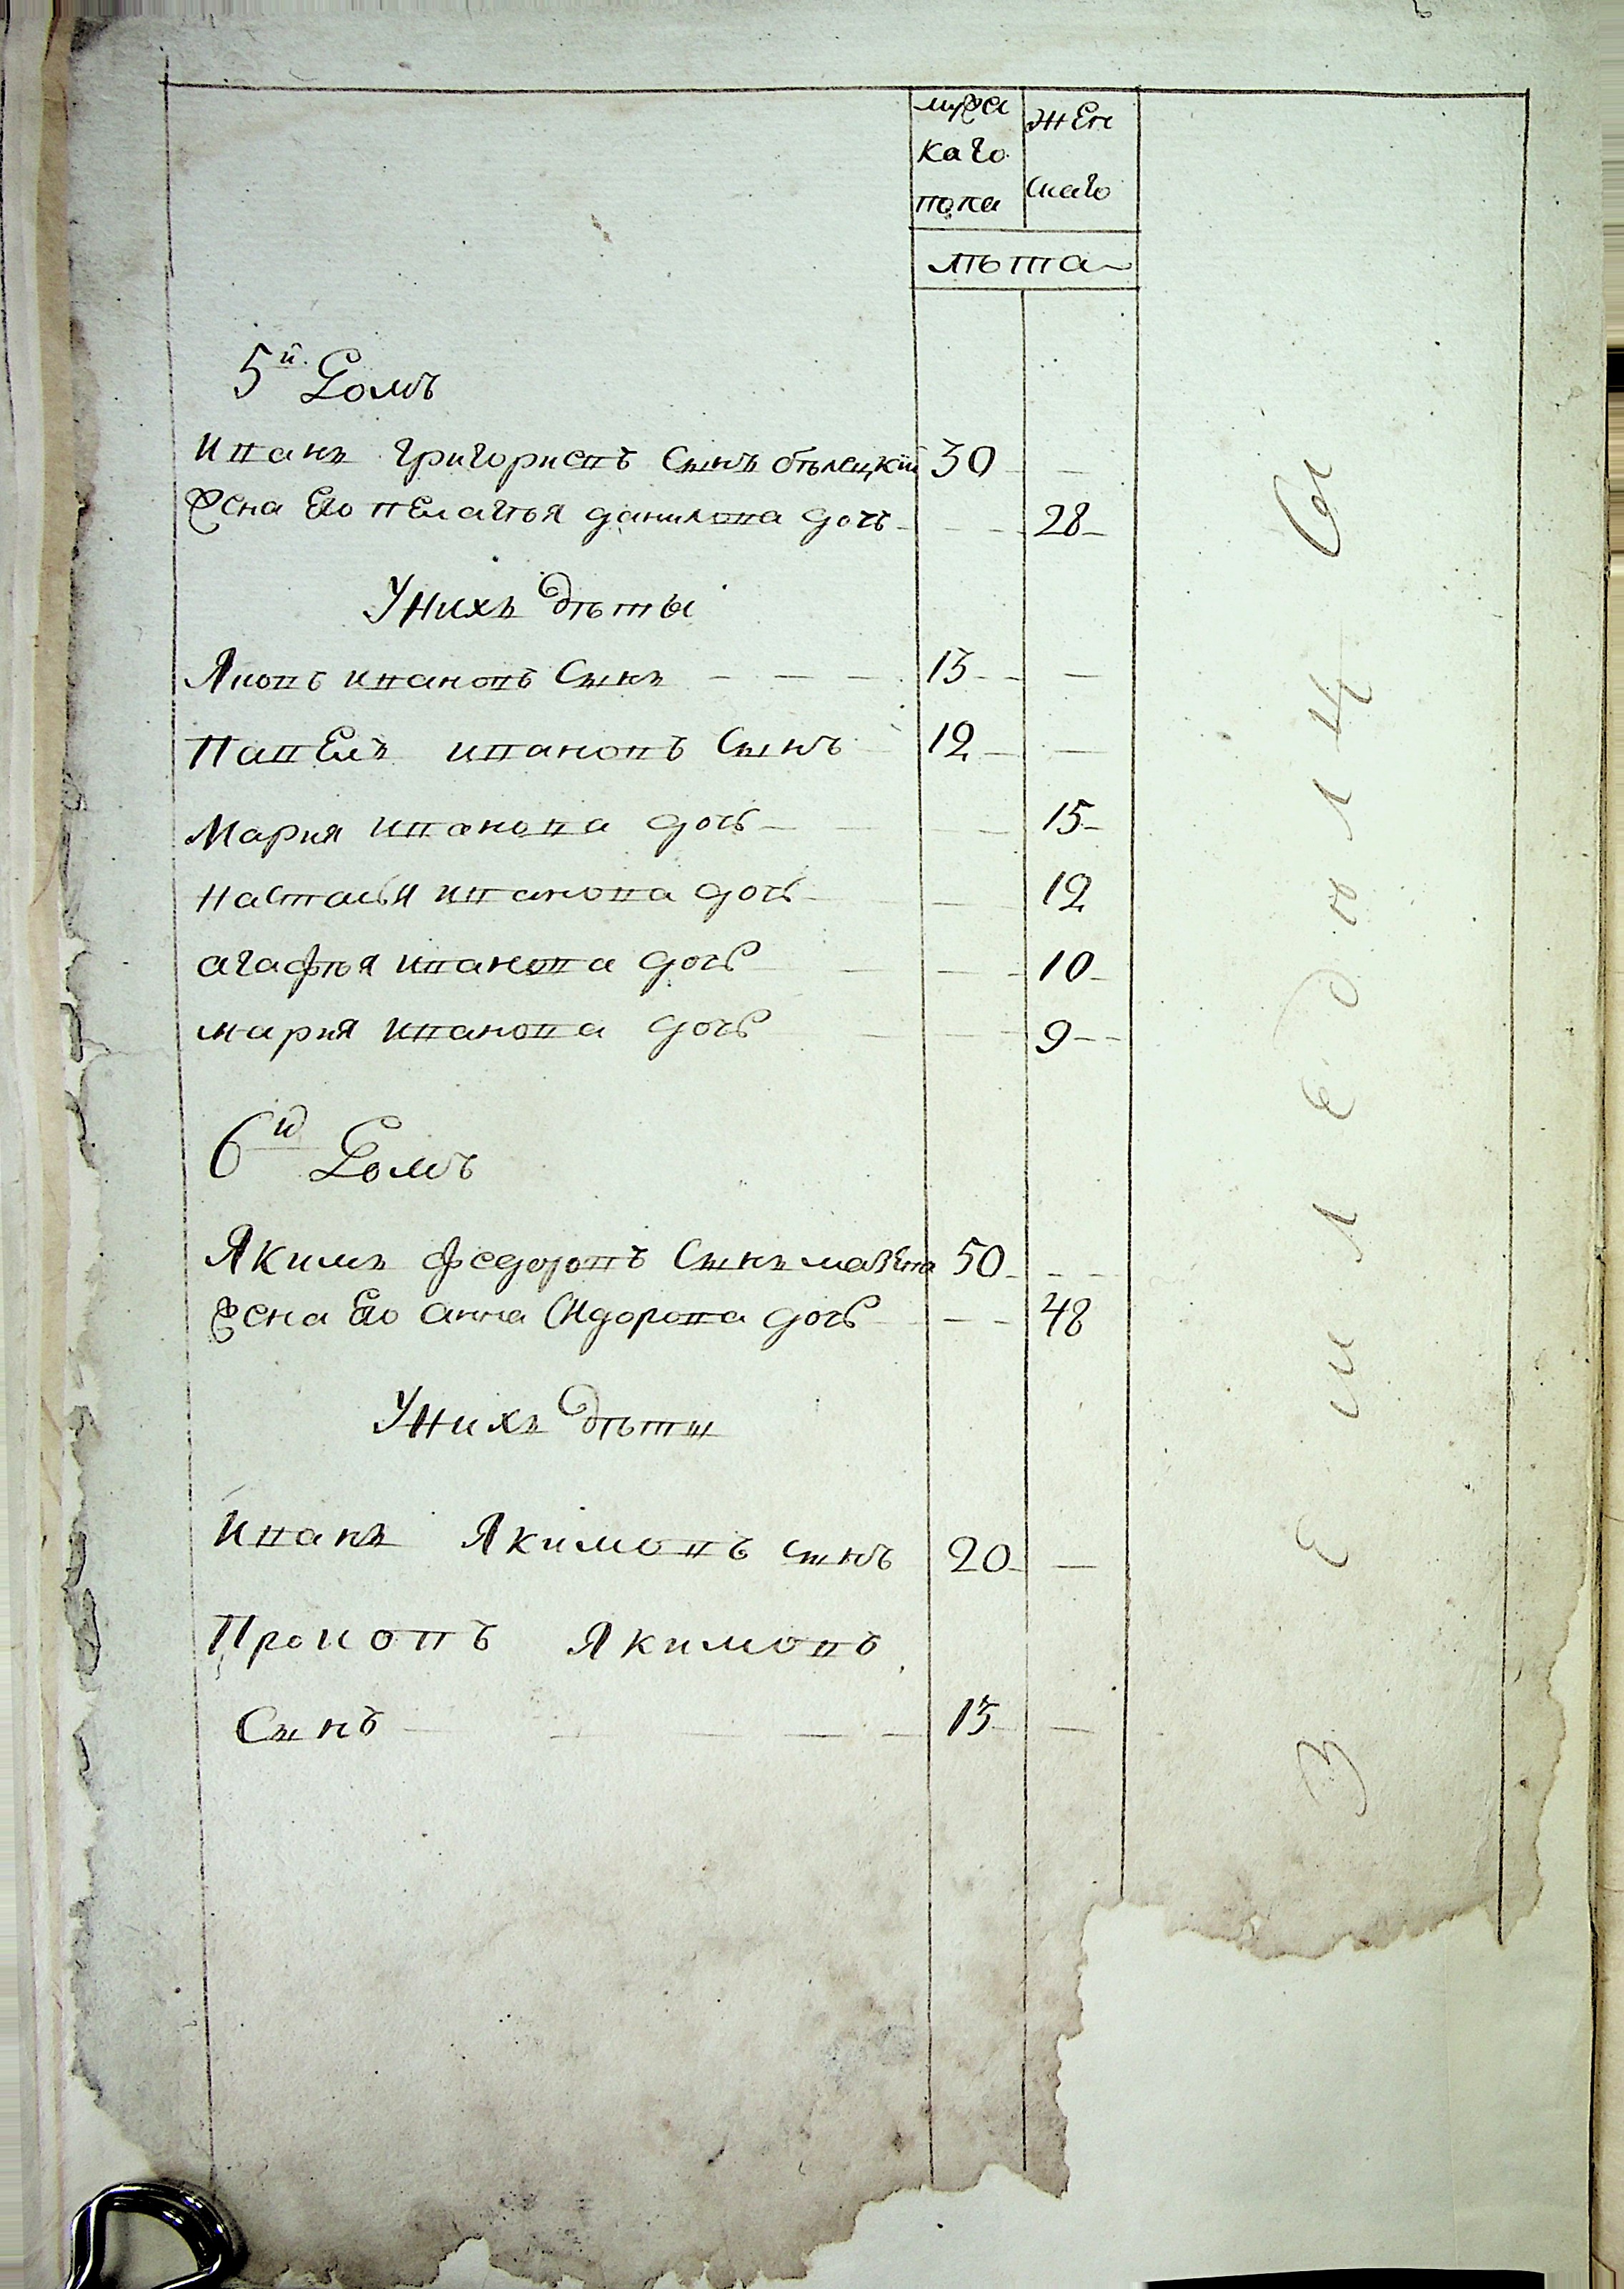 мужс
каго
пола
жен
скаго
лѣта
5й домъ
Иванъ Григориевъ Сынъ бѣлецкий 30
Жена Его пелагѣя данилова дочь 28
У нихъ дѣты
Яковъ ивановъ Сынъ 13
Павелъ ивановъ Сынъ 12
Мария иванова дочь 15
Настасья иванова дочь 12
агафѣя иванова дочь 10
мария иванова дочь 9
6й домъ
Якимъ федоровъ Сынъ мазепа 50
Жена Его анна Сидорова дочь 48
У нихъ дѣты
Иванъ Якимовъ сынъ 20
Прокопъ Якимовъ
Сынъ 13
Земледѣлцы